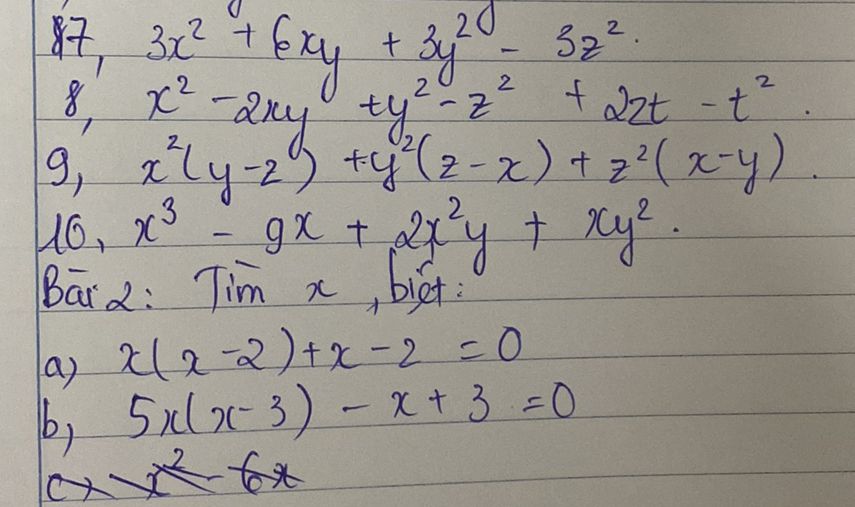 7, 3x² + 6xy + 3y² - 3z².
8, x² - 2xy + y² - z² + 2zt - t².
9, x²(y-z) + y²(z-x) + z²(x-y).
10, x³ - 9x + 2x²y + xy².
Bài 2: Tìm x, biết:
a) x(x-2)+x-2 = 0
b, 5x(x-3) - x + 3 = 0
c) x² - 6x